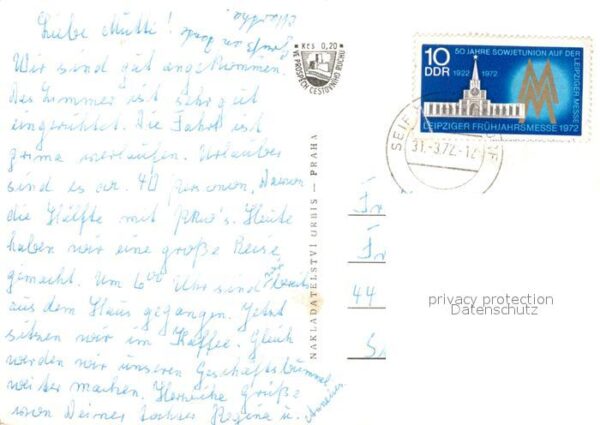 Liebe Mutti!
Wir sind gut angekommen.
Das Zimmer ist sehr gut
eingerichtet. Die Fahrt ist
prima verlaufen. Urlauber
sind es ca. 40 Personen, Davon
die Hälfte mit PKW's. Heute
haben wir eine große Reise
gemacht. Um 6 00 Uhr sind wir bereits
aus dem Haus gegangen. Jetzt
sitzen wir im Kaffee. Gleich
werden wir unseren Geschäftsbummel
weiter machen. Herzliche Grüße
von Deiner Tochter Regina u.
Kčs 0,20
VE PROSPĚCH CESTOVNÍHO RUCHU
NAKLADATELSTVÍ ORBIS — PRAHA
10
DDR
50 JAHRE SOWJETUNION AUF DER
LEIPZIGER MESSE
1922 1972
LEIPZIGER FRÜHJAHRSMESSE 1972
31.-3.72.-12
44
privacy protection
Datenschutz